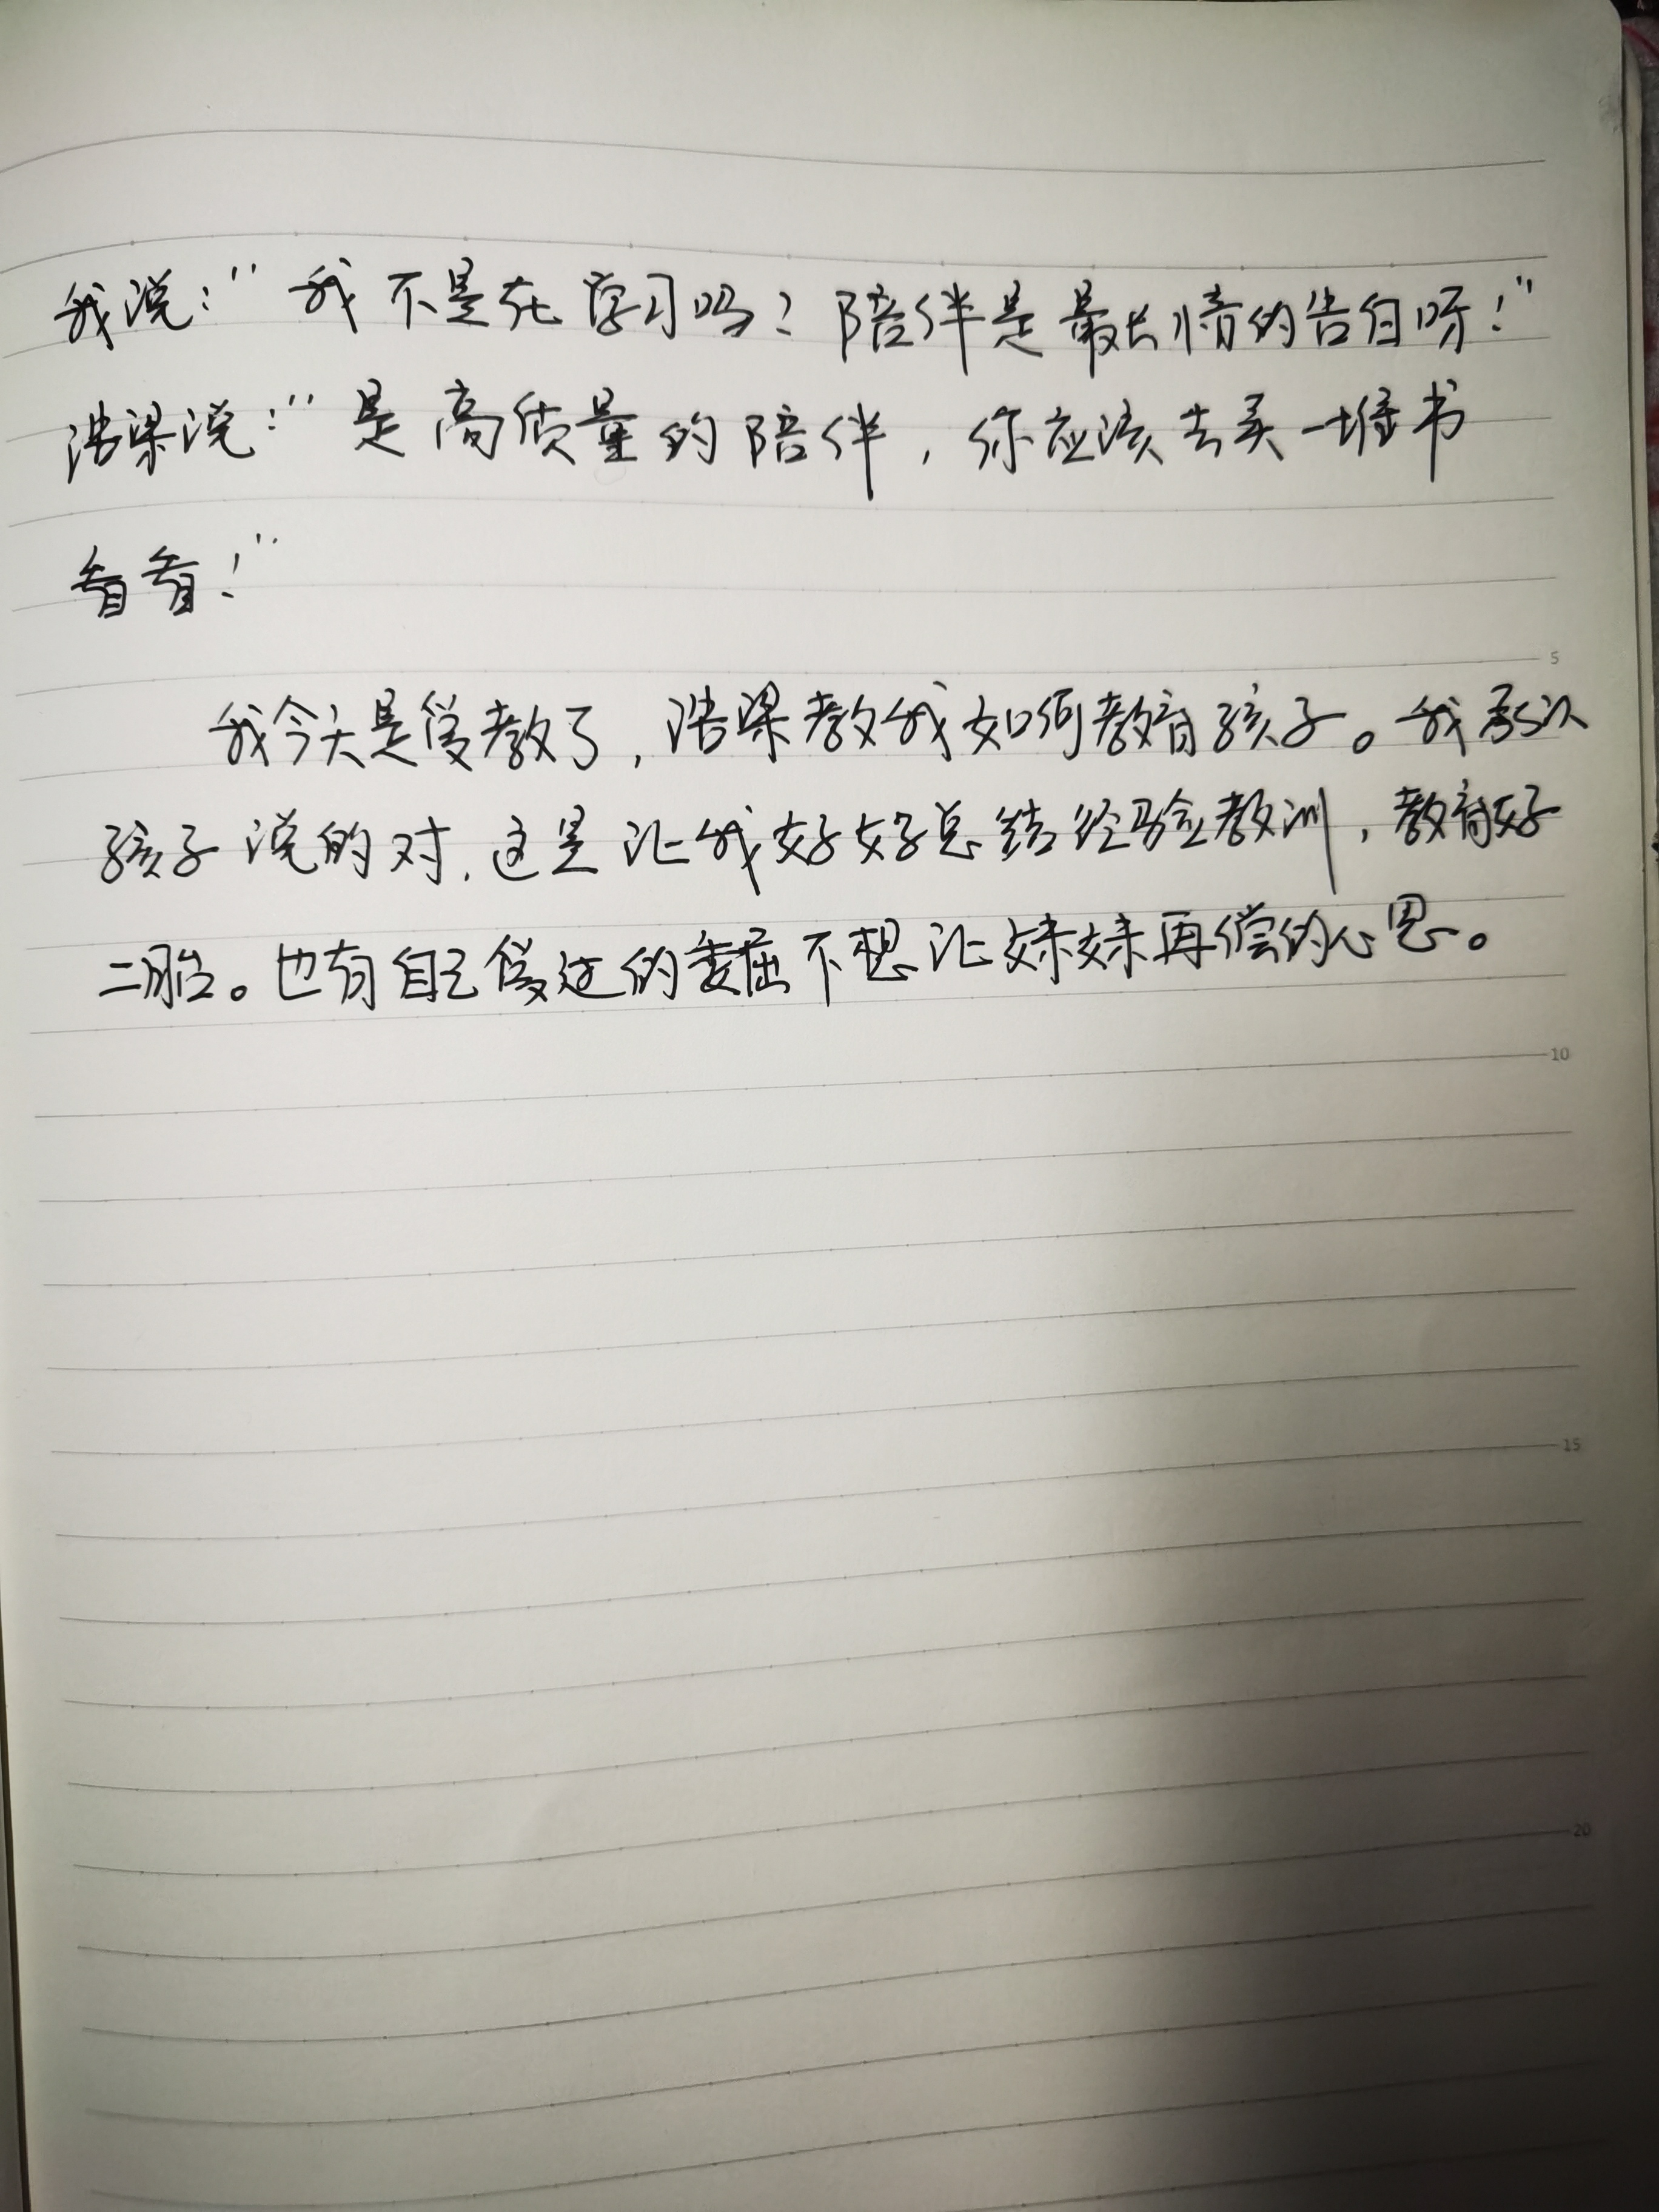 我说:"我不是在学习吗?陪伴是最长情的告白呀!"
浩梁说:"是高质量的陪伴,你应该去买一堆书
看看!"
5
我今天是受教了,浩梁教我如何教育孩子。我承认
孩子说的对,这是让我好好总结经验教训,教育好
二胎。也有自己受过的委屈不想让妹妹再偿的心思。
10
15
20